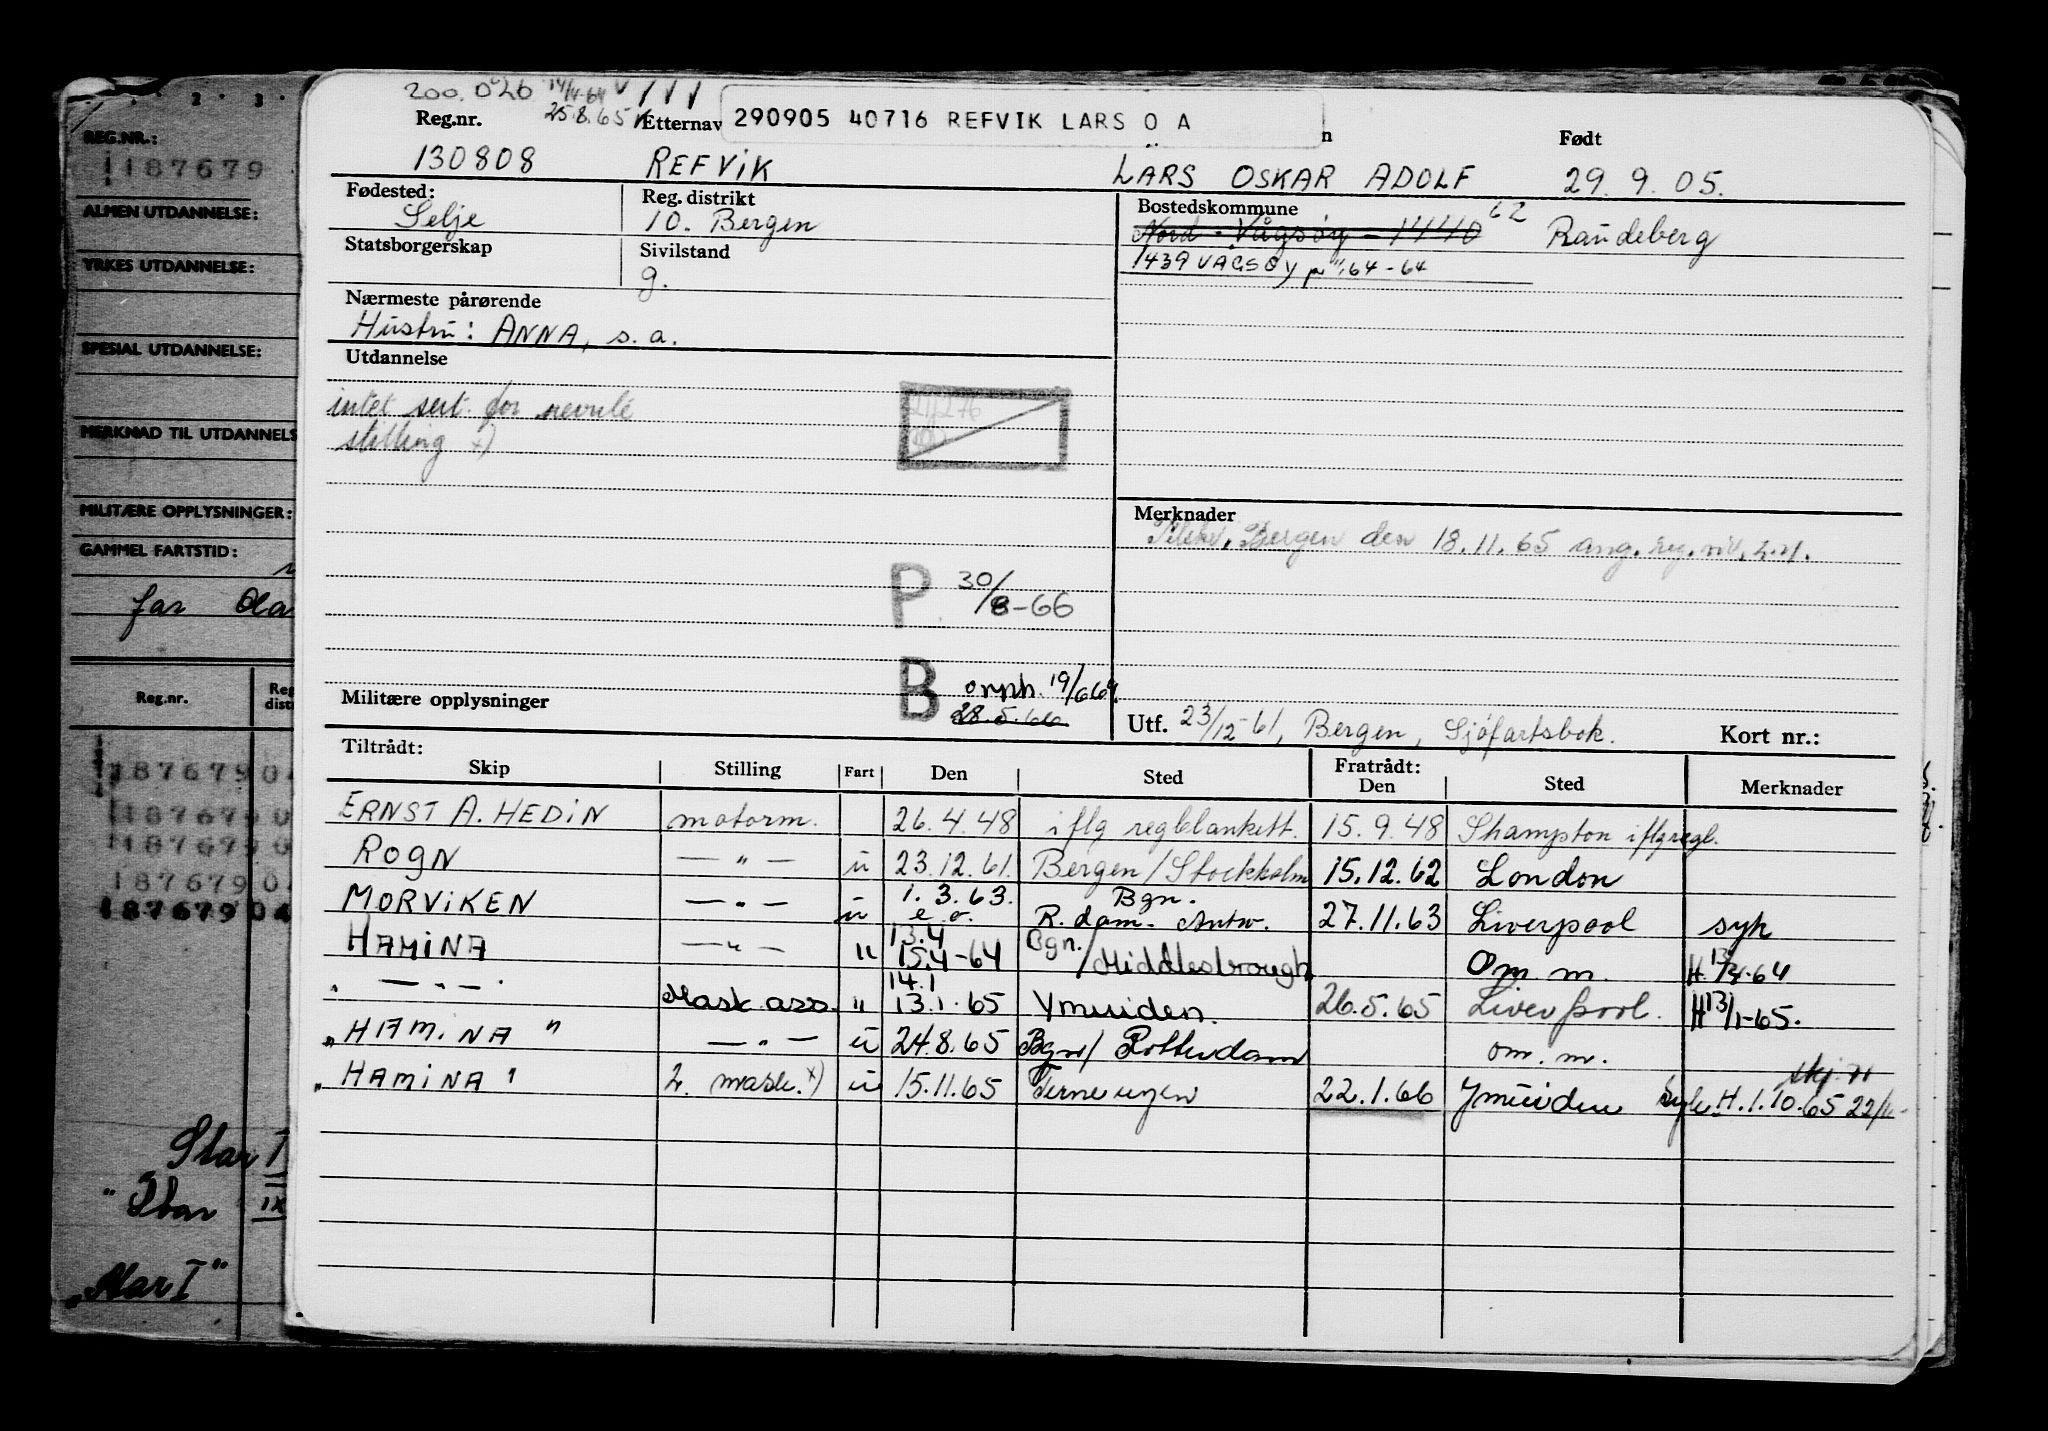 200.026 14/4-64 V / / /
25.8.65
Reg.nr. Etternav 290905 40716 REFVIK LARS O A n Født
130808 REFVIK LARS OSKAR ADOLF 29.9.05.
Fødested: Reg. distrikt Bostedskommune 62
Selje 10. Bergen Nord-Vågsøy - 1440 Raudeberg
Statsborgerskap Sivilstand 1439 VÅGSØY pr 1/1.64-64
g.
Nærmeste pårørende
Hustru: ANNA, s.a.
Utdannelse
intet sert. for
stilling x)
Merknader
Bergen den 18.11.65 ang.
P 30/8-66
B 19/6 69.
28.5.66
Militære opplysninger Utf. 23/12-61, Bergen, Sjøfartsbok. Kort nr.:
Tiltrådt: Fratrådt:
Skip Stilling Fart Den Sted Den Sted Merknader
ERNST A. HEDIN motorm. 26.4.48 iflg regblankett. 15.9.48 Shampton iflg regbl.
ROGN — " — u 23.12.61. Bergen/Stockholm 15.12.62 London
MORVIKEN — " — u 1.3.63. Bgn. e.o. R.dam-Antw. 27.11.63 Liverpool syk
HAMINA — " — " 13.4 15.4-64 Bgn./Middlesbrough Om m. H. 13/4-64
" — " — " Mask.ass. " 14.1 13.1.65 Ymuiden. 26.5.65 Liverpool. H 13/1-65.
"HAMINA" — " — u 24.8.65 Bgn/Rotterdam om.m.
"HAMINA" 2. mask. x) u 15.11.65 Terneuzen 22.1.66 Ymuiden H.1.10.65 22/11-
REG.NR.:
187679
ALMEN UTDANNELSE:
YRKES UTDANNELSE:
SPESIAL UTDANNELSE:
MERKNAD TIL UTDANNELS
MILITÆRE OPPLYSNINGER:
GAMMEL FARTSTID:
far Ola
Reg.nr. Reg dist
187679 04
187679 0
187679 0
187679 0
187679 04
Star I
"Star IX
"Star I"